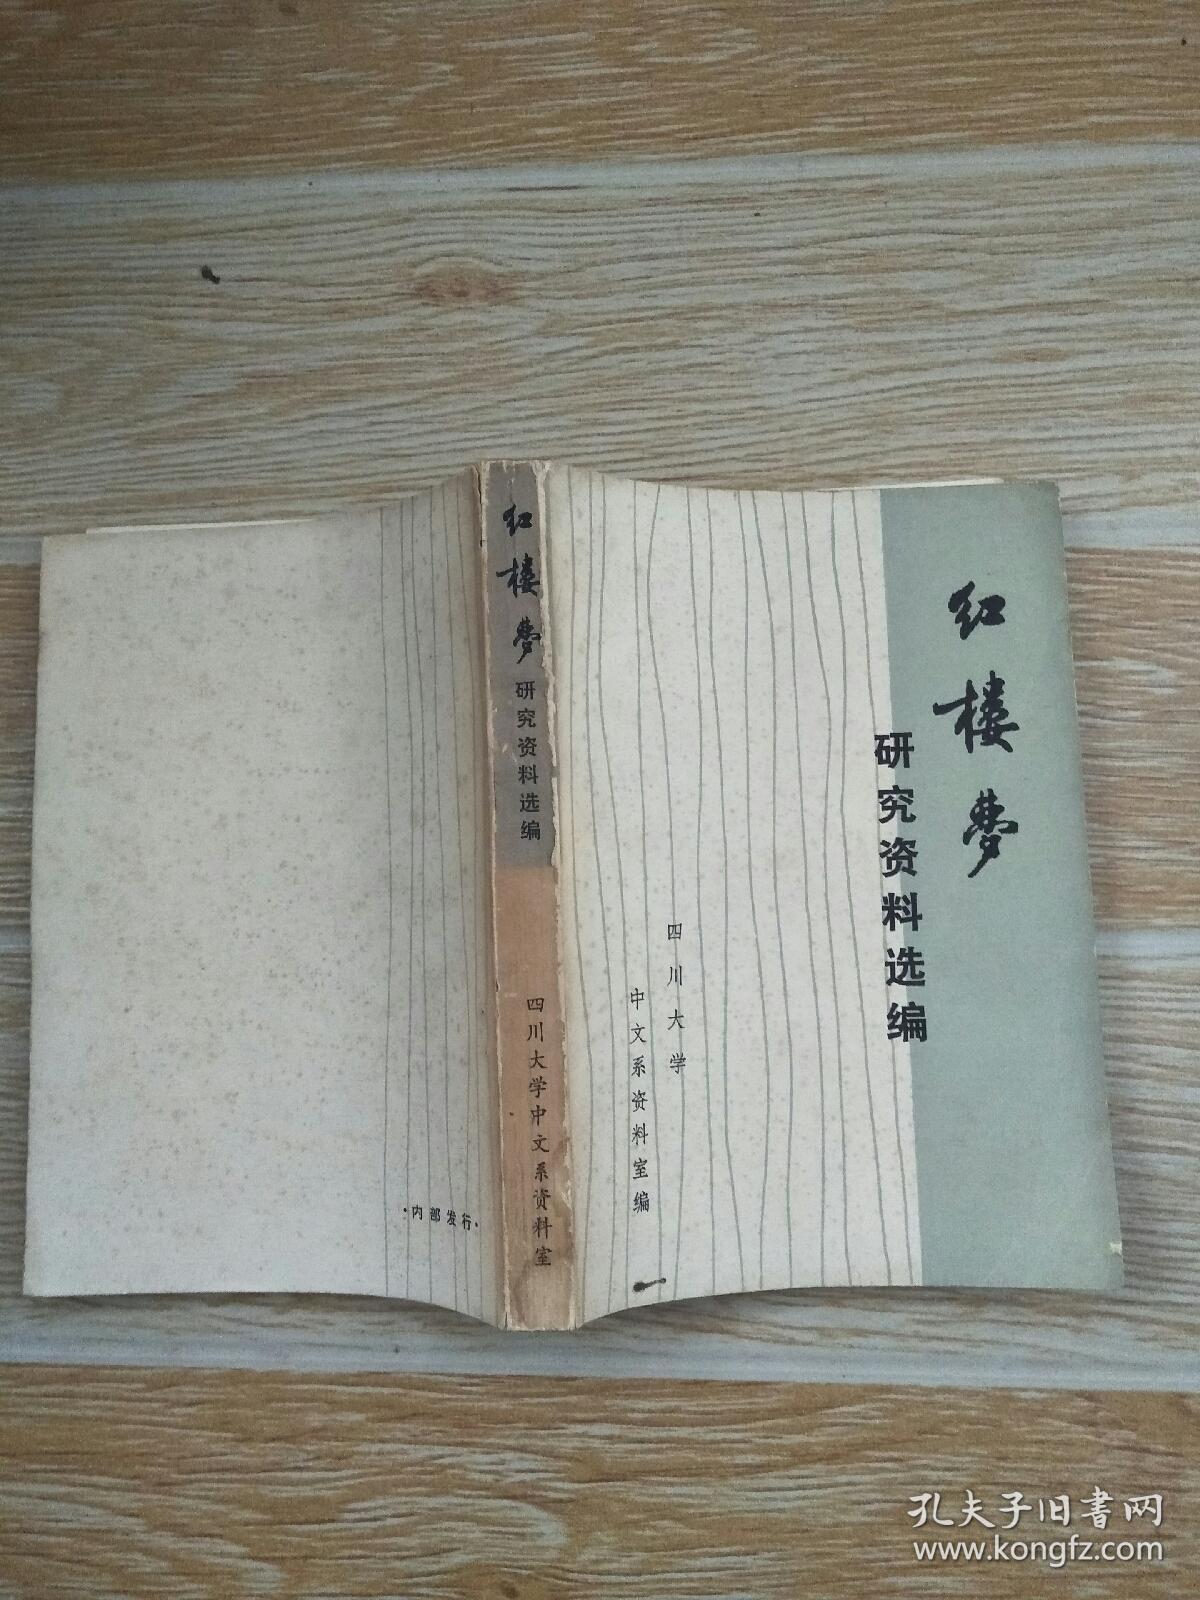 红楼梦
研究资料选编
四川大学
中文系资料室编
红楼梦
研究资料选编
四川大学中文系资料室
·内部发行·
孔夫子旧書网
www.kongfz.com